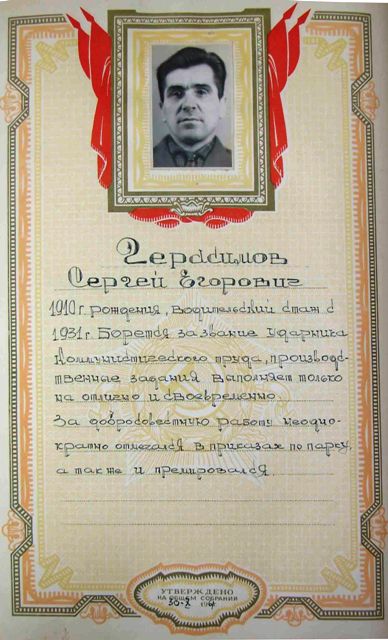 Герасимов
Сергей Егорович
1910 г. рождения, водительский стаж с
1931 г. Борется за звание ударника
Коммунистического труда, производс-
твенные задания выполняет только
на отлично и своевременно.
За добросовестную работу неодно-
кратно отмечался в приказах по парку,
а также и премировался.
УТВЕРЖДЕНО
НА ОБЩЕМ СОБРАНИИ
30-X 196